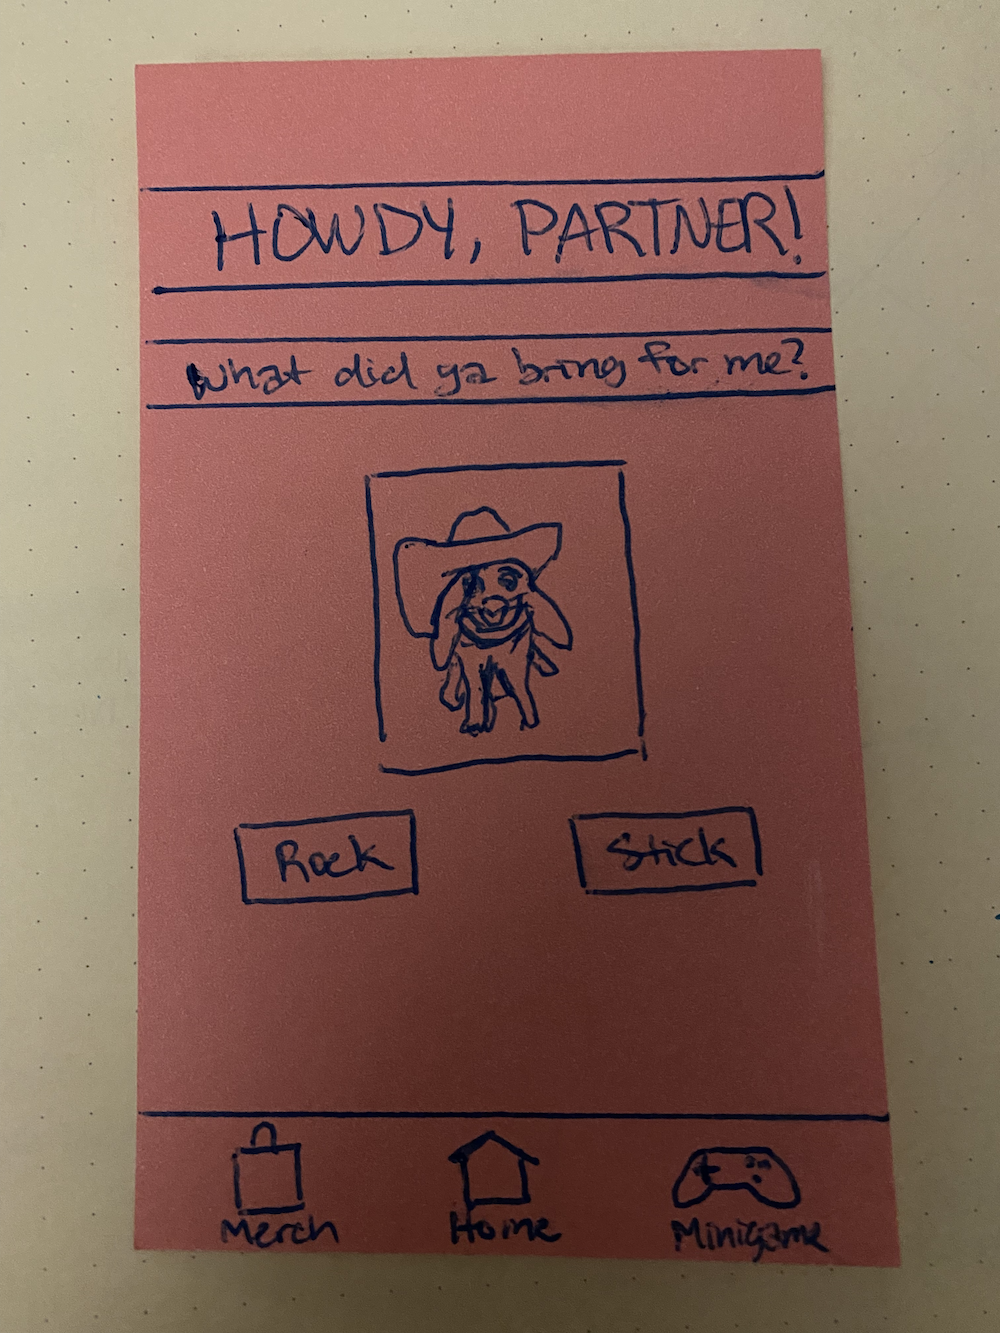 HOWDY, PARTNER!
What did ya bring for me?
Rock
Stick
Merch
Home
Minigame